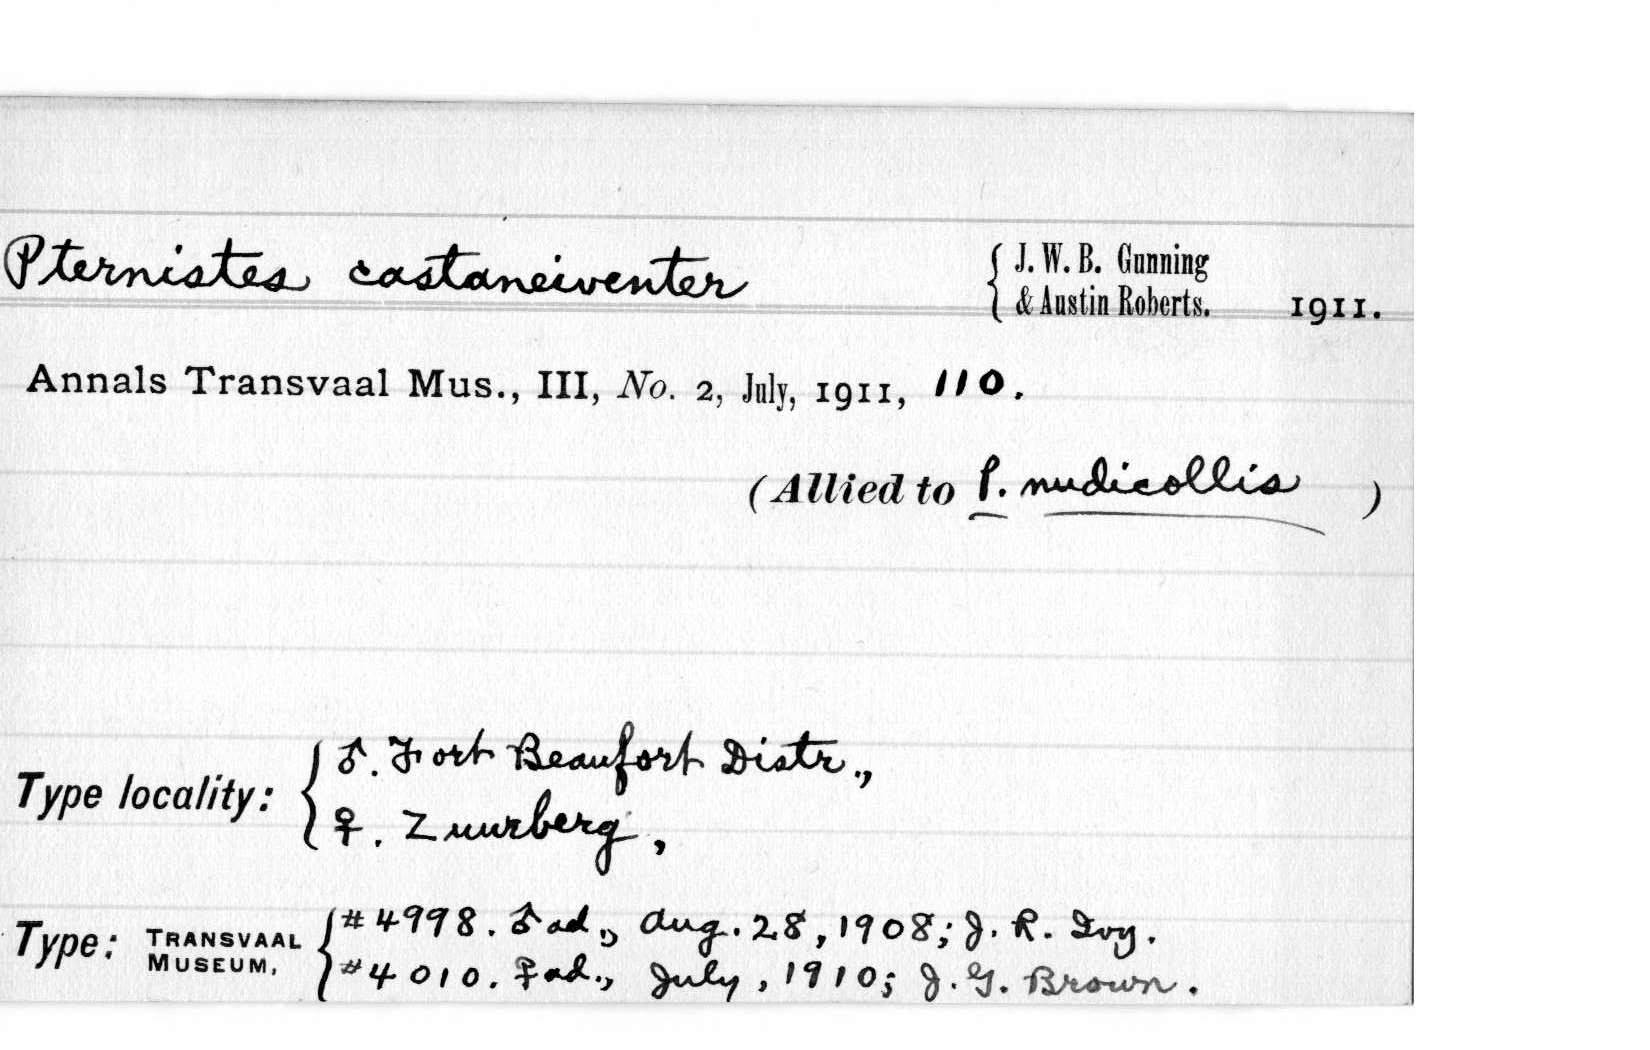 Pternistes castaneiventer { J. W. B. Gunning
& Austin Roberts. 1911.
Annals Transvaal Mus., III, No. 2, July, 1911, 110.
(Allied to P. nudicollis )
Type locality: { ♂. Fort Beaufort Distr.,
♀. Zuurberg,
Type: TRANSVAAL MUSEUM, { #4998. ♂ ad., Aug. 28, 1908; J. R. Ivy.
#4010. ♀ ad., July, 1910; J. G. Brown.